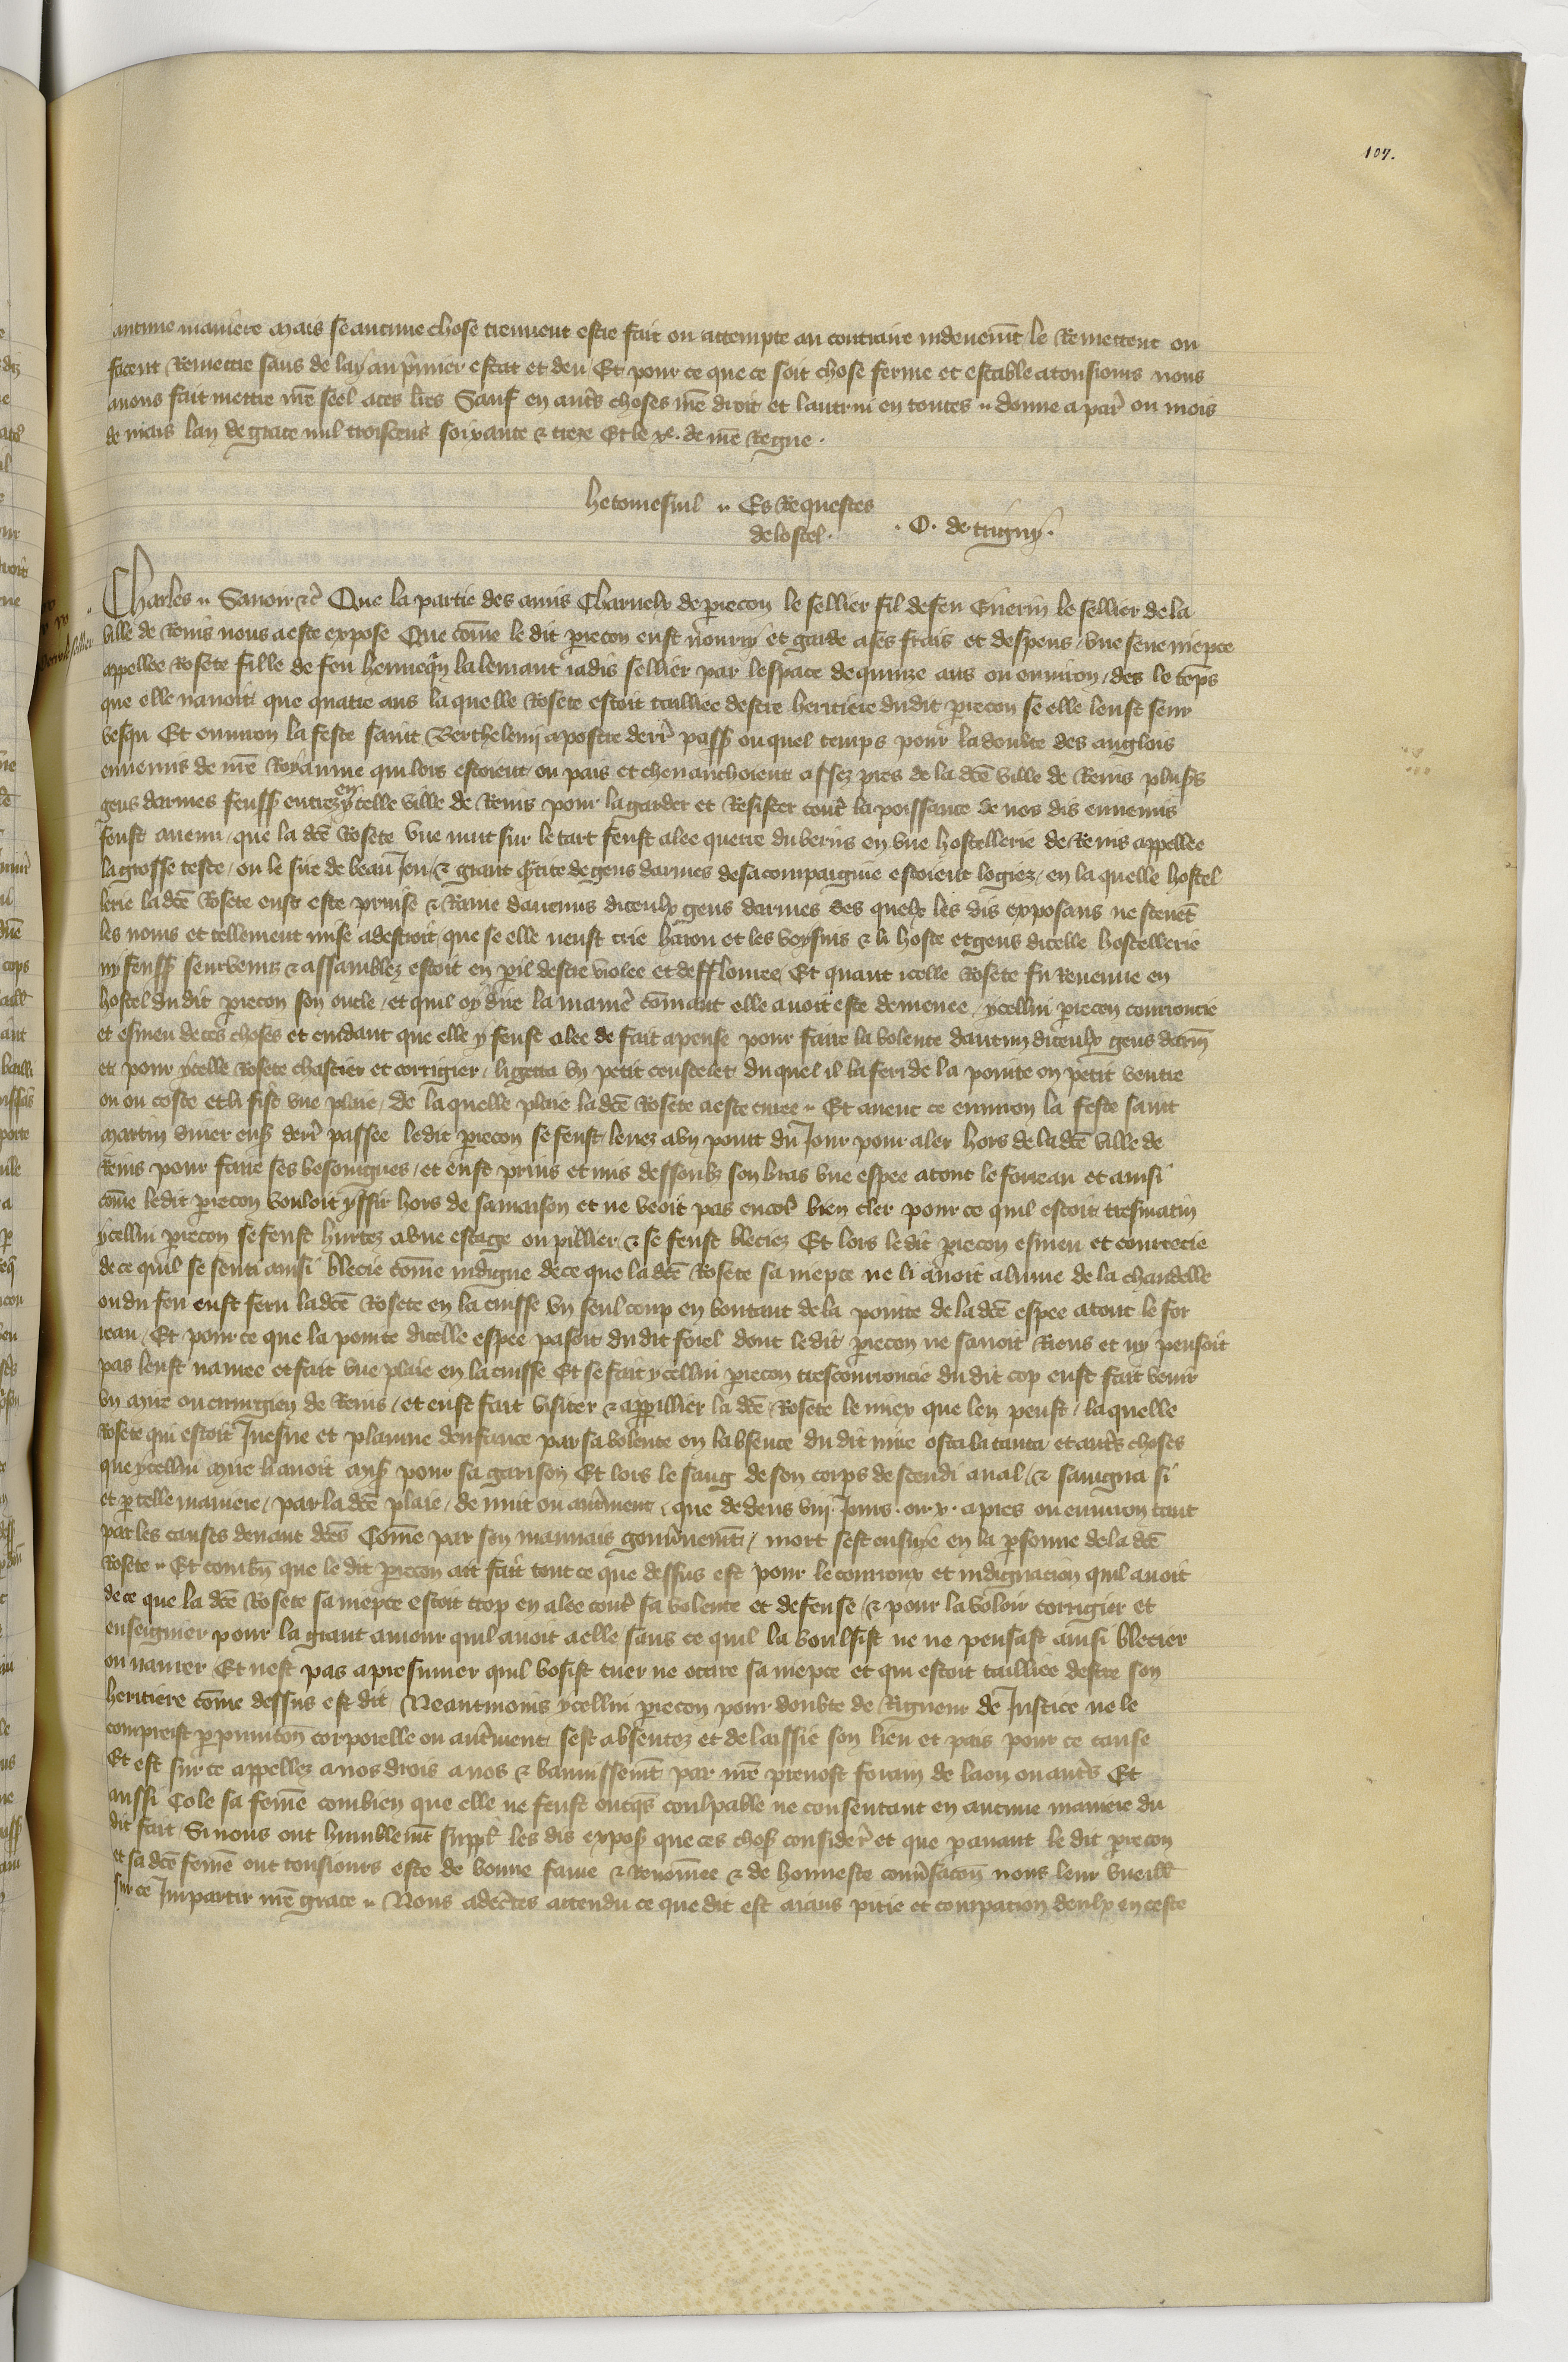 107.
aucune maniere mais se aucune chose treuvent estre fait ou attempte au contraire indeuemt le Remettent ou
facent Remettre sans delay au pmier estat et deu Et pour ce que ce soit chose ferme et estable a tousiours nous
avons fait mettre nre seel a ces lres Sauf en autrs choses nre droit et lautrui en toutes .. donne a par ou mois
de mars lan de grace mil troiscens soixante & treze Et le xe. de nre Regne.
hetomesnil .. Es Requestes
de lostel.
. O. de trigny.
Charles .. Savoir &c Que la partie des amis Charnelx de piecon le sellier fil de feu Guerin le sellier de la
ville de Reins nous a este expose Que come le dit piecon eust nourry et garde a ses frais et despens / une seue niepce
appellee Rosete fille de feu hennequin lalemant iadis sellier par lespace de quinze ans ou environ / des le temps
que elle navoit que quatre ans la quelle Rosete estoit tailliee destre heritiere du dit piecon se elle leust seur
vesqu Et environ la feste saint Berthelemy apostre derr pass ou quel temps pour la doubte des anglois
ennemis de nre Royaume qui lors estoient ou pais et chevauchoient assez pres de la dce ville de Reins plusrs
gens darmes feuss entrez en ycelle ville de Reins pour la garder et Resister contr la poissance de nos dis ennemis
feust avenu / que la dce Rosete une nuit sur le tart feust alee querre du verius en une hostellerie de Reins appellee
la grosse teste / ou le sire de beau Jeu / & grant partie de gens darmes de sa compaignie estoient logiez / en la quelle hostel
lerie la dce Rosete eust este prinse & Ravie daucuns diceulx gens darmes des quelx les dis exposans ne scevet
les noms et tellement mise a destroit / que se elle neust crie harou et les voysins & li hoste et gens dicelle hostellerie
ny feuss seurvenuz & assamblez estoit en pil destre violee et defflouree Et quant icelle Rosete fu Revenue en
hostel du dit piecon son oncle / et quil oy dire la manier comant elle avoit este demenee / ycellui piecon courroucie
et esmeu de ces choses et cuidant que elle y feust alee de fait apense pour faire la volente daucun diceulx gens darm
et pour ycelle Rosete chastier et corrigier / li getta un petit coustelet du quel il la feri de la pointe ou petit ventre
ou ou coste et li fist une plaie / de la quelle plaie la dce Rosete a este curee .. Et avent ce environ la feste saint
martin diver ens derr passee le dit piecon se feust levez a un point du Jour pour aler hors de la dce ville de
Reins pour faire ses besoingnes / et eust prins et mis dessoubz son bras une espee a tout le foureau et ainsi
come le dit piecon vouloit yssir hors de sa maison et ne veoit pas encor bien cler pour ce quil estoit tresmatin
ycellui piecon se feust hurtez a une estage ou pillier & se feust bleciez Et lors le dit piecon esmeu et courrecie
de ce quil se senti ainsi blecie come indigne de ce que la dce Rosete sa niepce ne li avoit alume de la chandelle
ou du feu eust feru la dce Rosete en la cuisse un seul coup en boutant de la pointe de la dce espee a tout le for
reau / Et pour ce que la pointe dicelle espee passoit du dit forel dont le dit piecon ne savoit Riens et ny pensoit
pas leust navree et fait une plaie en la cuisse Et se fait ycellui piecon trescourroucie du dit cop eust fait venir
un mire ou cirurgien de Reins / et eust fait visiter & appillier la dce Rosete le miex que len peust / la quelle
Rosete qui estoit Juesne et plainne denfance par sa volente en labsence du dit mire osta la tanta / et autrs choses
que ycellui mire li avoit mis pour sa garison Et lors le sang de son corps descendi aval / & saingna si
et p telle maniere / par la dce plaie / de nuit ou autrment / que dedens viij. Jours . ou . x . apres ou environ tant
par les causes devant dces Come par son mauvais gouvnemt / mort sest ensuye en la psonne de la dce
Rosete .. Et combn que le dit piecon ait fait tout ce que dessus est pour le courroux et indignacion quil avoit
de ce que la dce Rosete sa niepce estoit trop en alee contr sa volente et defense / & pour la voloir corrigier et
enseignier pour la grant amour quil avoit a elle / sans ce quil la voulsist ne ne pensast ainsi blecier
ou navrer Et nest pas a presumer quil vosist tuer ne occire sa niepce et qui estoit tailliee destre son
heritiere come dessus est dit / Neantmoins ycellui piecon pour doubte de Rigueur de Justice ne le
compreist p punicion corporelle ou autrment sest absentez et delaissie son lieu et pais pour ce cause
Et est sur ce appellez a nos drois a nos & bannissemt par nre prevost forain de laon ou autrs Et
aussi Cole sa feme combien que elle ne feust oncqs coulpable ne consentant en aucune maniere du
dit fait / Si nous ont humblemt suppl les dis expos que ces chos consider et que pavant le dit piecon
et sa dce feme ont tousiours este de bonne fame & Renomee & de honneste convsacon nous leur vueill
sur ce Impartir nre grace .. Nous adectes attendu ce que dit est aians pitie et compacion deulx en ceste